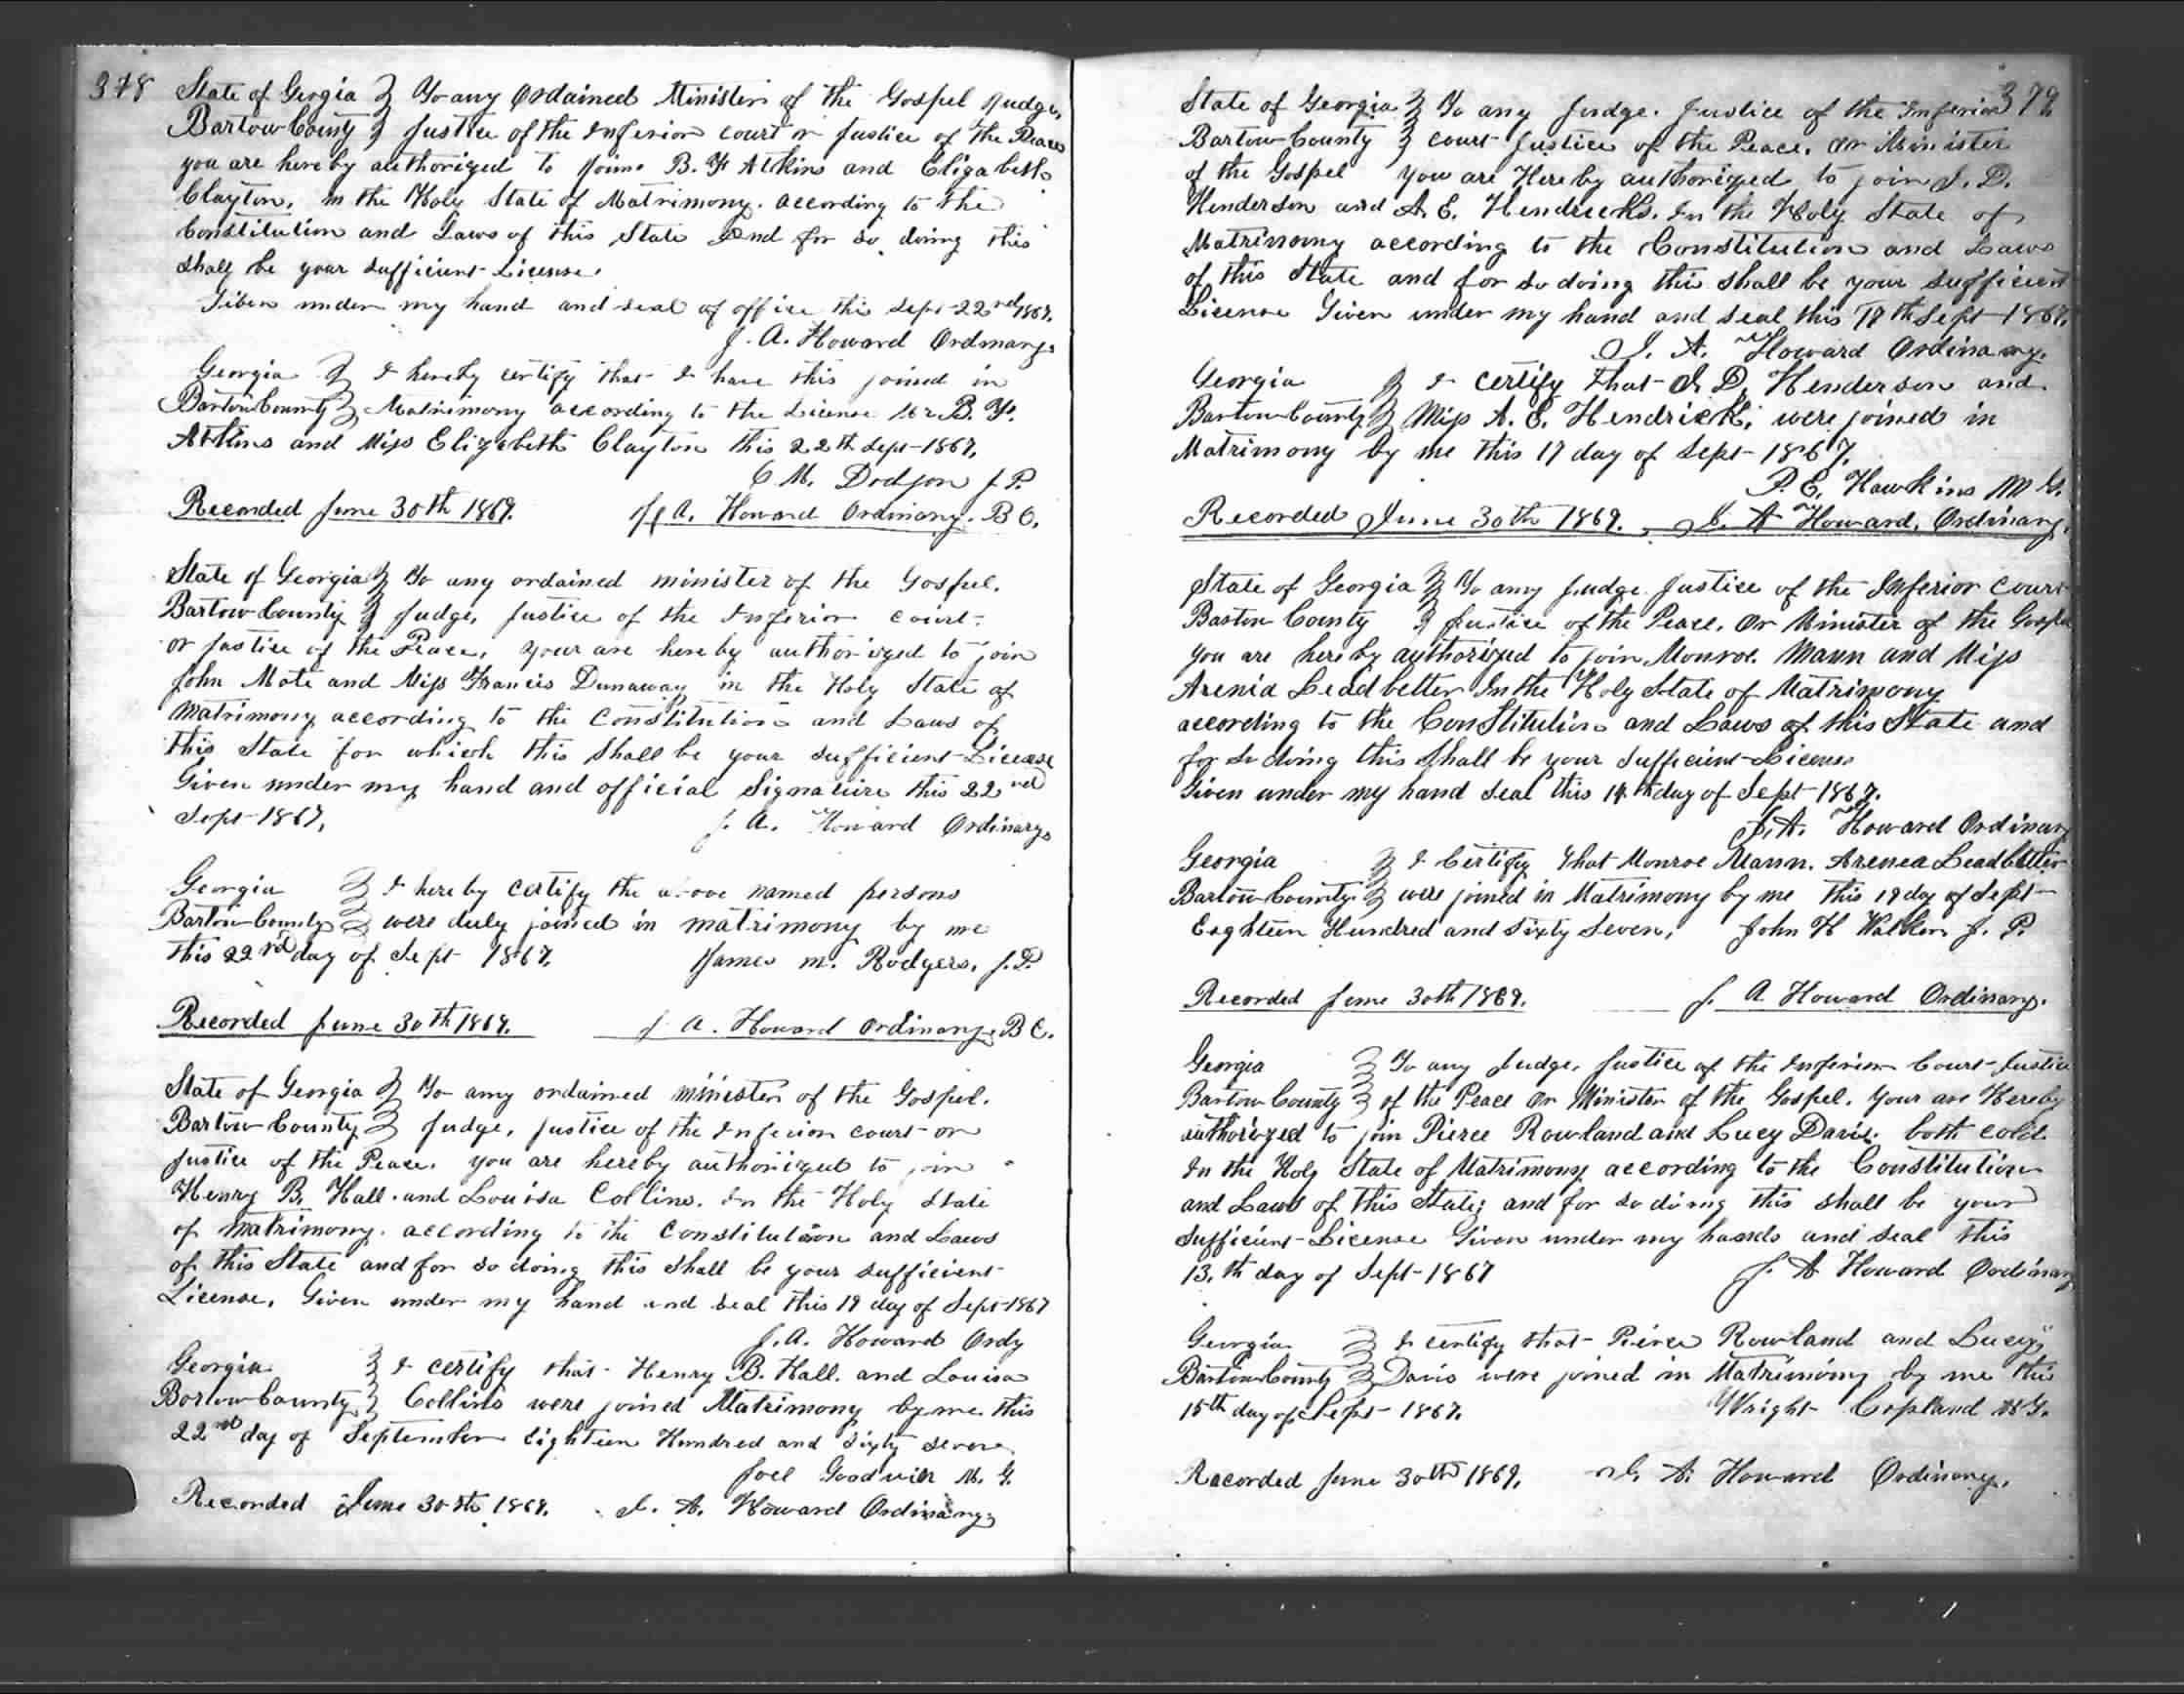 378
State of Gergia } To any Ordained Minister of the Gospel Judge,
Bartow County } Justice of the Inferior court or Justice of the Peace
you are hereby authorized to Joine B. F. Atkins and Elizabeth
Clayton, in the Holy State of Matrimony. according to the
Constitution and Laws of this State And for so doing this
shall be your sufficient License.
Given under my hand and seal of office this Sept 22nd 1867.
J. A. Howard Ordinary.
Georgia } I hereby certify that I have this joined in
Bartow County } Matrimony according to the License Mr B. F.
Atkins and Miss Elizebeth Clayton this 22th Sept 1867.
C M. Dodson J. P.
Recorded June 30th 1869. J A. Howard Ordinary. B C.
State of Georgia } To any ordained minister of the Gospel.
Bartow County } Judge, Justice of the Inferior court
or Justice of the Peace, your are hereby authorized to join
John Mote and Miss Francis Dunaway in the Holy State of
Matrimony according to the Constitution and Laws of
this State for which this shall be your sufficient License
Given under my hand and official Signature this 22nd
Sept 1867. J. A. Howard Ordinary.
Georgia } I hereby certify the above named persons
Bartow County } were duly joined in matrimony by me
this 22nd day of Sept 1867. James M. Rodgers, J. P.
Recorded June 30th 1869. J A. Howard Ordinary. B C.
State of Georgia } To any ordained minister of the Gospel.
Bartow County } Judge, Justice of the Inferior court or
Justice of the Peace. you are hereby authorized to join
Henry B. Hall. and Louisa Collins. In the Holy State
of Matrimony. according to the Constitution and Laws
of this State and for so doing this shall be your sufficient
License. Given under my hand and seal this 19 day of Sept 1867
J. A. Howard Ordy
Georgia } I certify that Henry B. Hall. and Louisa
Bortow County } Collins were joined Matrimony by me this
22nd day of September Eighteen Hundred and Sixty seven
Joel Goodwin M. G.
Recorded June 30th 1869. J. A. Howard Ordinary
379
State of Georgia } To any Judge. Justice of the Inferior
Bartow County } court Justice of the Peace, or Minister
of the Gospel you are Hereby authorized to join J. D.
Henderson and A. E. Hendricks. In the Holy State of
Matrimony according to the Constitution and Laws
of this State and for so doing this shall be your sufficient
License Given under my hand and seal this 17th Sept 1867.
J. A. Howard Ordinary.
Georgia } I certify that J. D. Henderson and
Bartow County } Miss A. E. Hendricks, were joined in
Matrimony by me this 17 day of Sept 1867.
P. E. Hawkins M G.
Recorded June 30th 1869. J. A Howard, Ordinary.
State of Georgia } To any Judge Justice of the Inferior Court
Bartow County } Justice of the Peace, Or Minister of the Gospel
you are hereby authorized to join Monroe. Mann and Miss
Arenia Leadbetter In the Holy State of Matrimony
according to the Constitution and Laws of this State and
for so doing this shall be your sufficient License
Given under my hand seal this 14th day of Sept 1867.
J. A. Howard Ordinary
Georgia } I Certify that Monroe Mann. Arenea Leadbetter
Bartow County } were joined in Matrimony by me this 19 day of Sept
Eaghteen Hundred and Sixty Seven, John H Walker J. P.
Recorded June 30th 1869. J. A Howard Ordinary.
Georgia } To any Judge, Justice of the Inferior Court Justice
Bartow County } of the Peace Or Minister of the Gospel, Your are Hereby
authorized to join Pierce Rowland and Lucy Davis. both cold
In the Holy State of Matrimony according to the Constitution
and Laws of this State; and for so doing this shall be your
sufficient License Given under my hands and seal this
13.th day of Sept 1867 J. A Howard Ordinary
Georgia } I certify that Peirce Rowland and Lucy
Bartow County } Davis were joined in Matrimony by me this
15th day of Sept 1867. Wright Copland M G.
Recorded June 30th 1869. J. A. Howard Ordinary.